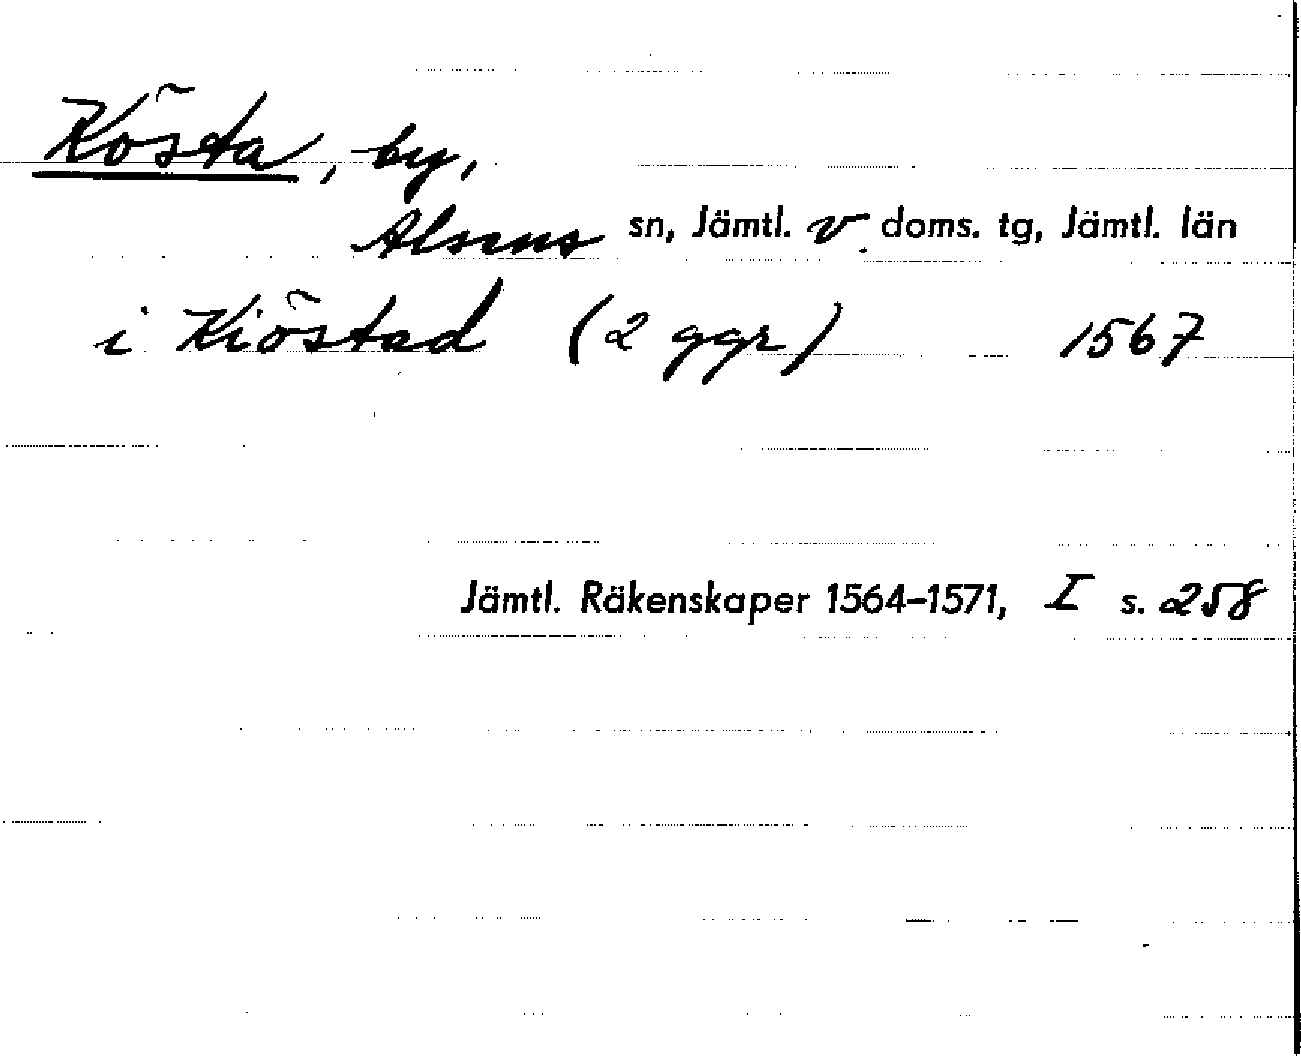 Kösta, by,
Alsens sn, Jämtl. v. doms. tg, Jämtl. län
i Kiöstad (2 ggr) 1567
Jämtl. Räkenskaper 1564–1571, I s. 258